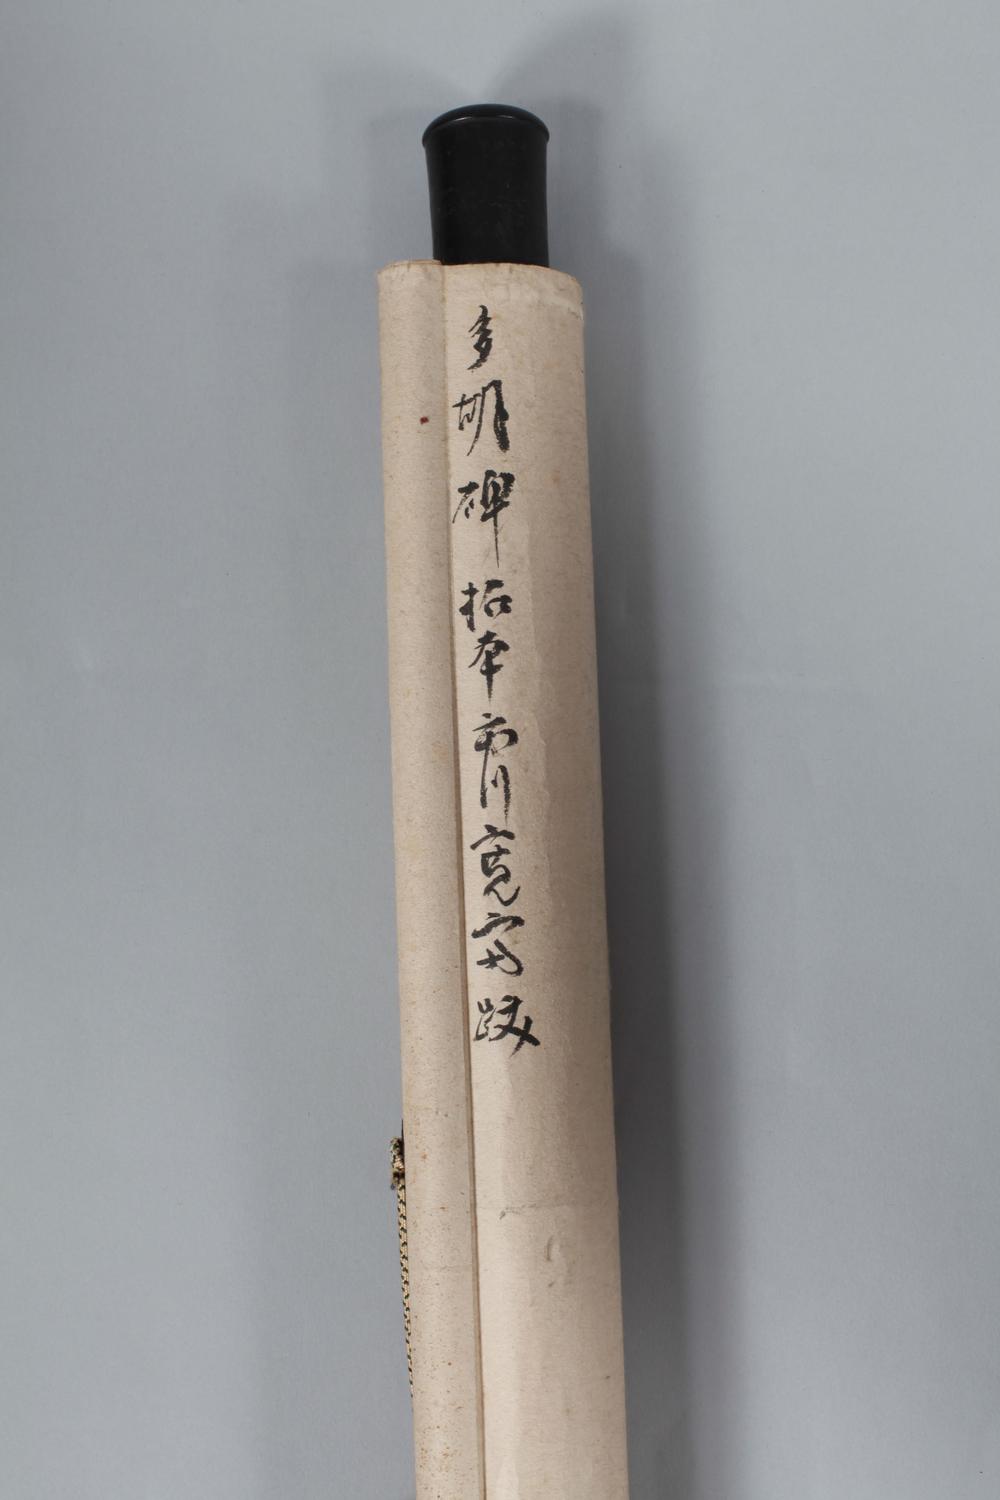 多胡碑拓本市川寛斎跋